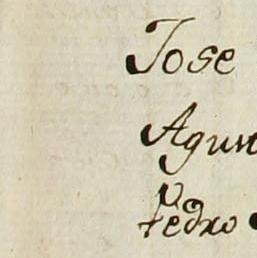 Jose
Agust
Pedro